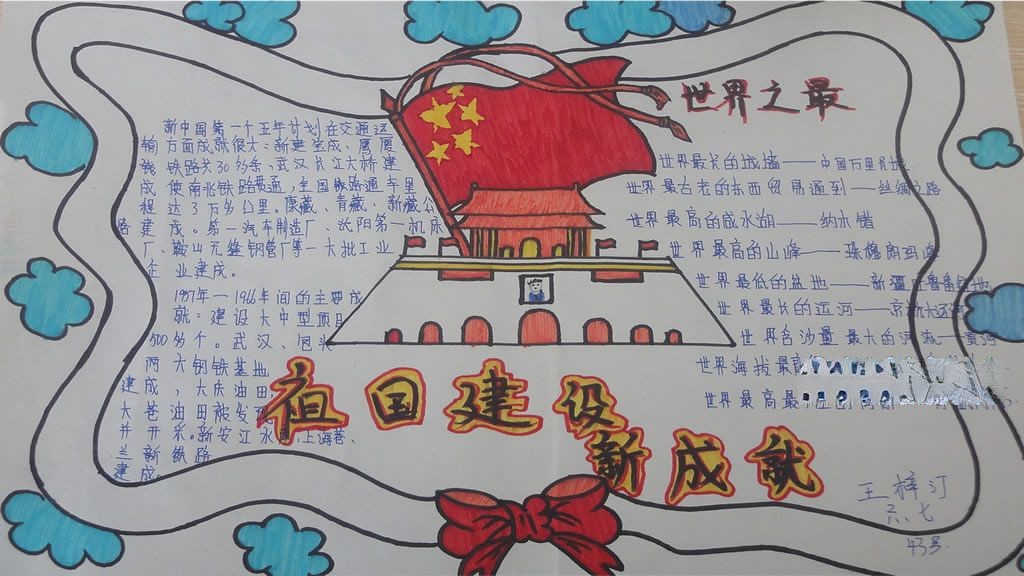 新中国第一个五年计划在交通运
输方面成就很大：新建宝成、鹰厦
铁路共30多条，武汉长江大桥建
成使南北铁路贯通，全国铁路通车里
程达3万多公里。康藏、青藏、新藏公
路建成。第一汽车制造厂、沈阳第一机床
厂、鞍山无缝钢管厂等一大批工业
企业建成。
1957年—1966年间的主要成
就：建设大中型项目
500多个。武汉、包头
两大钢铁基地
建成，大庆油田，
大巷油田被发现
并开采。新安江水 上海巷、
兰新铁路
建成。
世界之最
世界最长的城墙——中国万里长城
世界最古老的东西贸易通到——丝绸之路
世界最高的咸水湖——纳木错
世界最高的山峰——珠穆朗玛
世界最低的盆地——新疆吐鲁番盆地
世界最长的运河——京杭大运河
世界含沙量最大的河流——黄河
世界海拔最高
世界最高最
祖国建设
新成就
王梓汀
六、七
43号